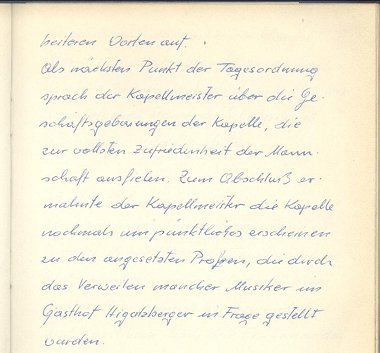 heiteren Worten auf.
Als nächsten Punkt der Tagesordnung
sprach der Kapellmeister über die Ge-
schäftsgebarungen der Kapelle, die
zur vollsten Zufriedenheit der Mann-
schaft ausfielen. Zum Abschluß er-
mahnte der Kapellmeister die Kapelle
nochmals um pünktliches erscheinen
zu den angesetzten Proben, die durch
das Verweilen mancher Musiker im
Gasthof Higatzberger in Frage gestellt
wurden.